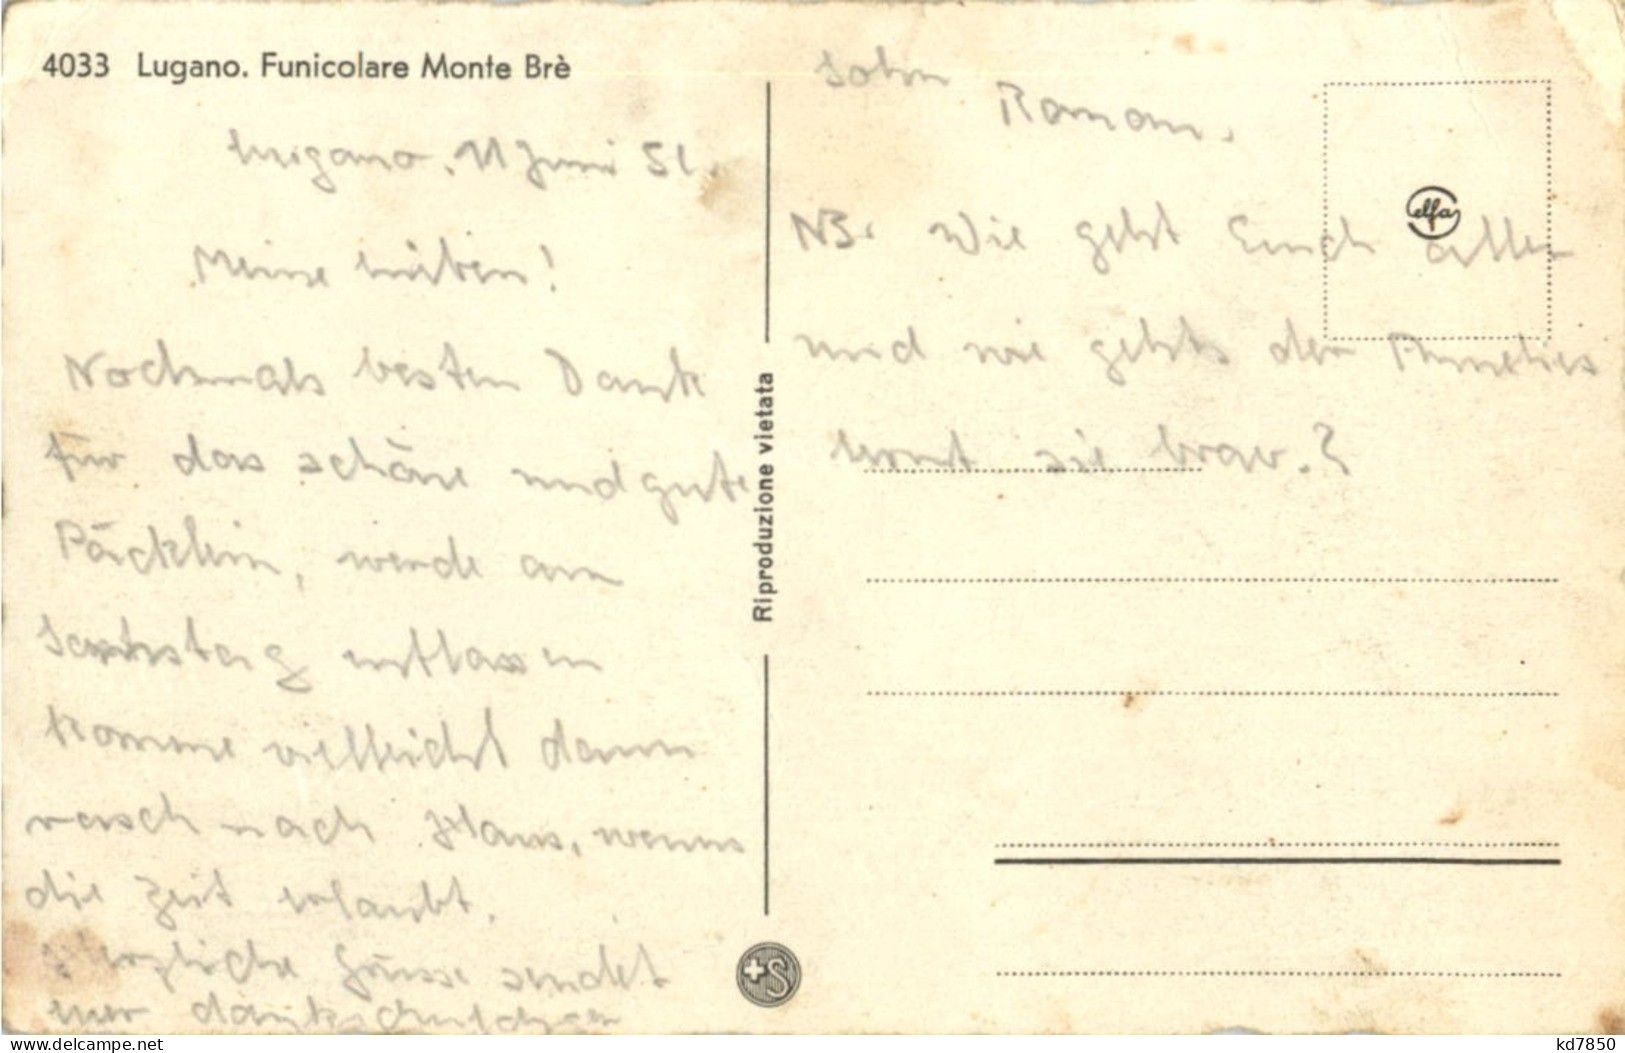 4033 Lugano. Funicolare Monte Brè
Lugano, 11 Juni 51.
Meine Lieben!
Nochmals besten Dank
für das schöne und gute
Päcklein, werde am
Samstag entlassen
komme vielleicht dann
rasch nach Haus, wenns
die Zeit erlaubt.
Herzliche Grüsse sendet
euer dankschuldiger
Sohn
Roman.
NB. Wie geht Euch allen
und wie gehts der Annelies
lernt sie brav.?
Riproduzione vietata
elfa
+S
www.delcampe.net
kd7850